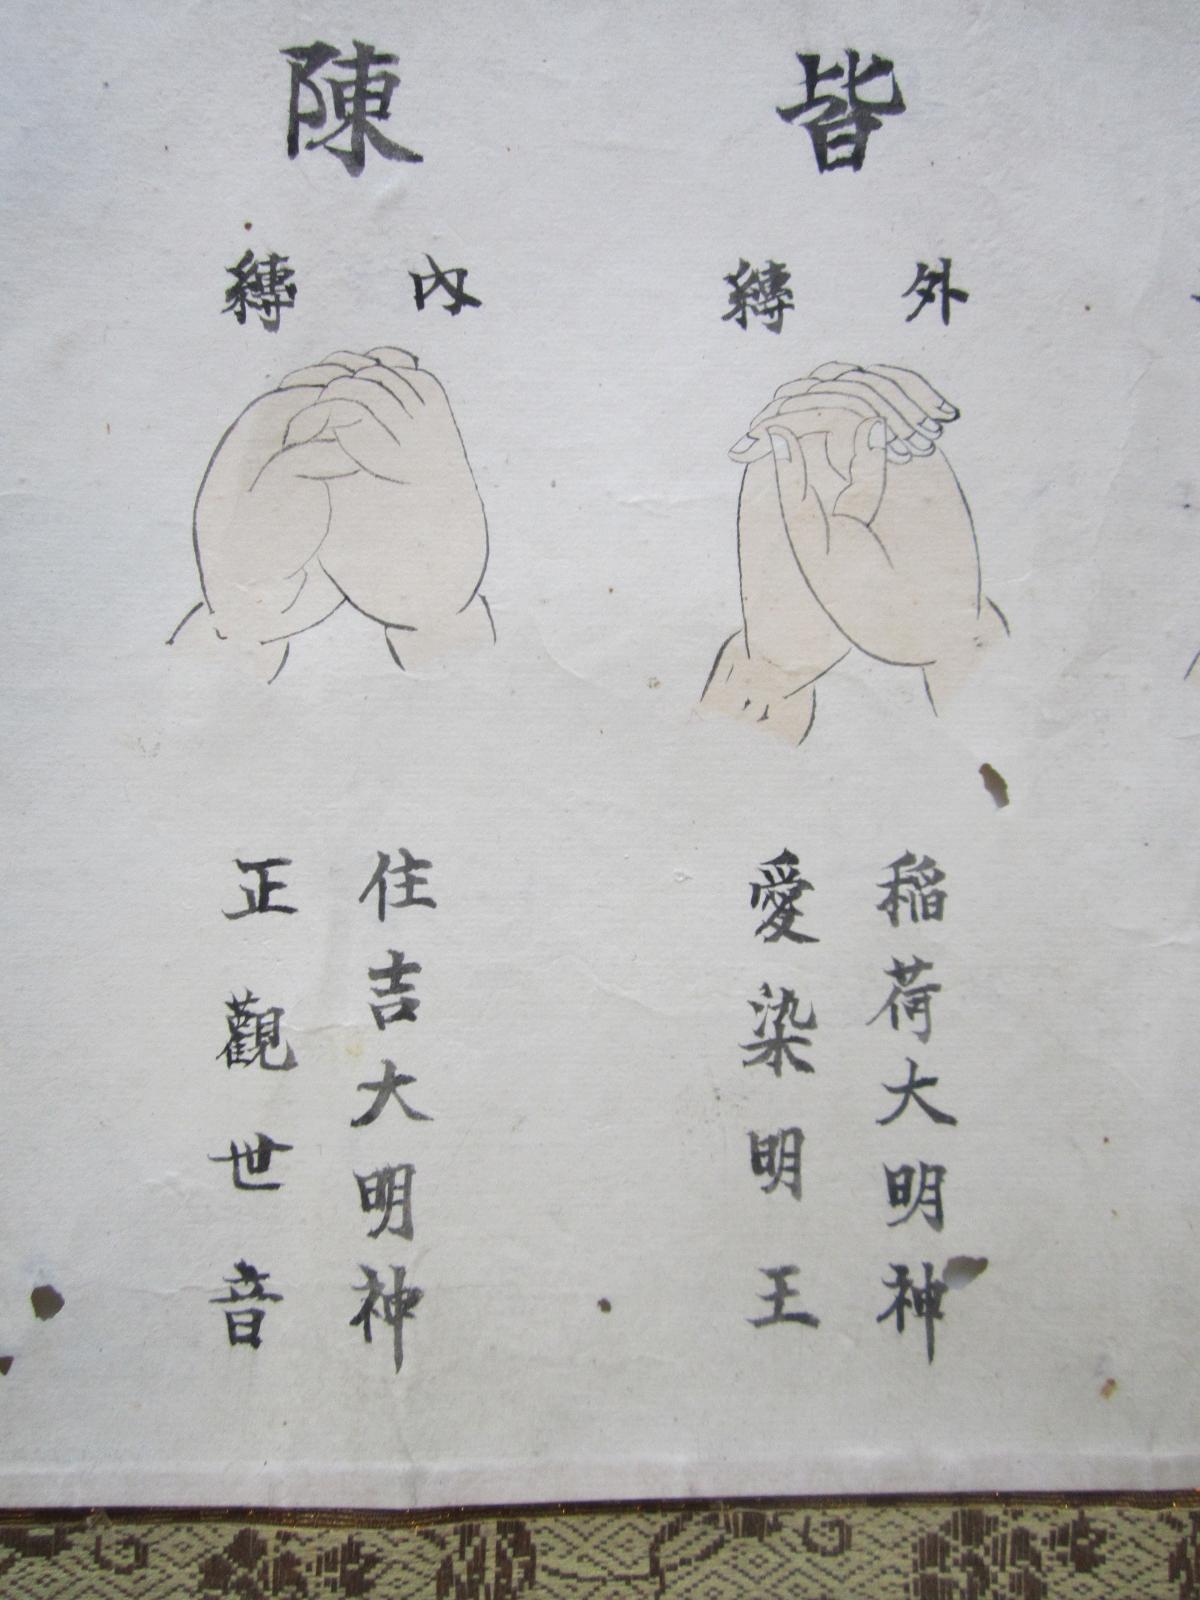 皆
外縛
稲荷大明神
愛染明王
陳
內縛
住吉大明神
正觀世音